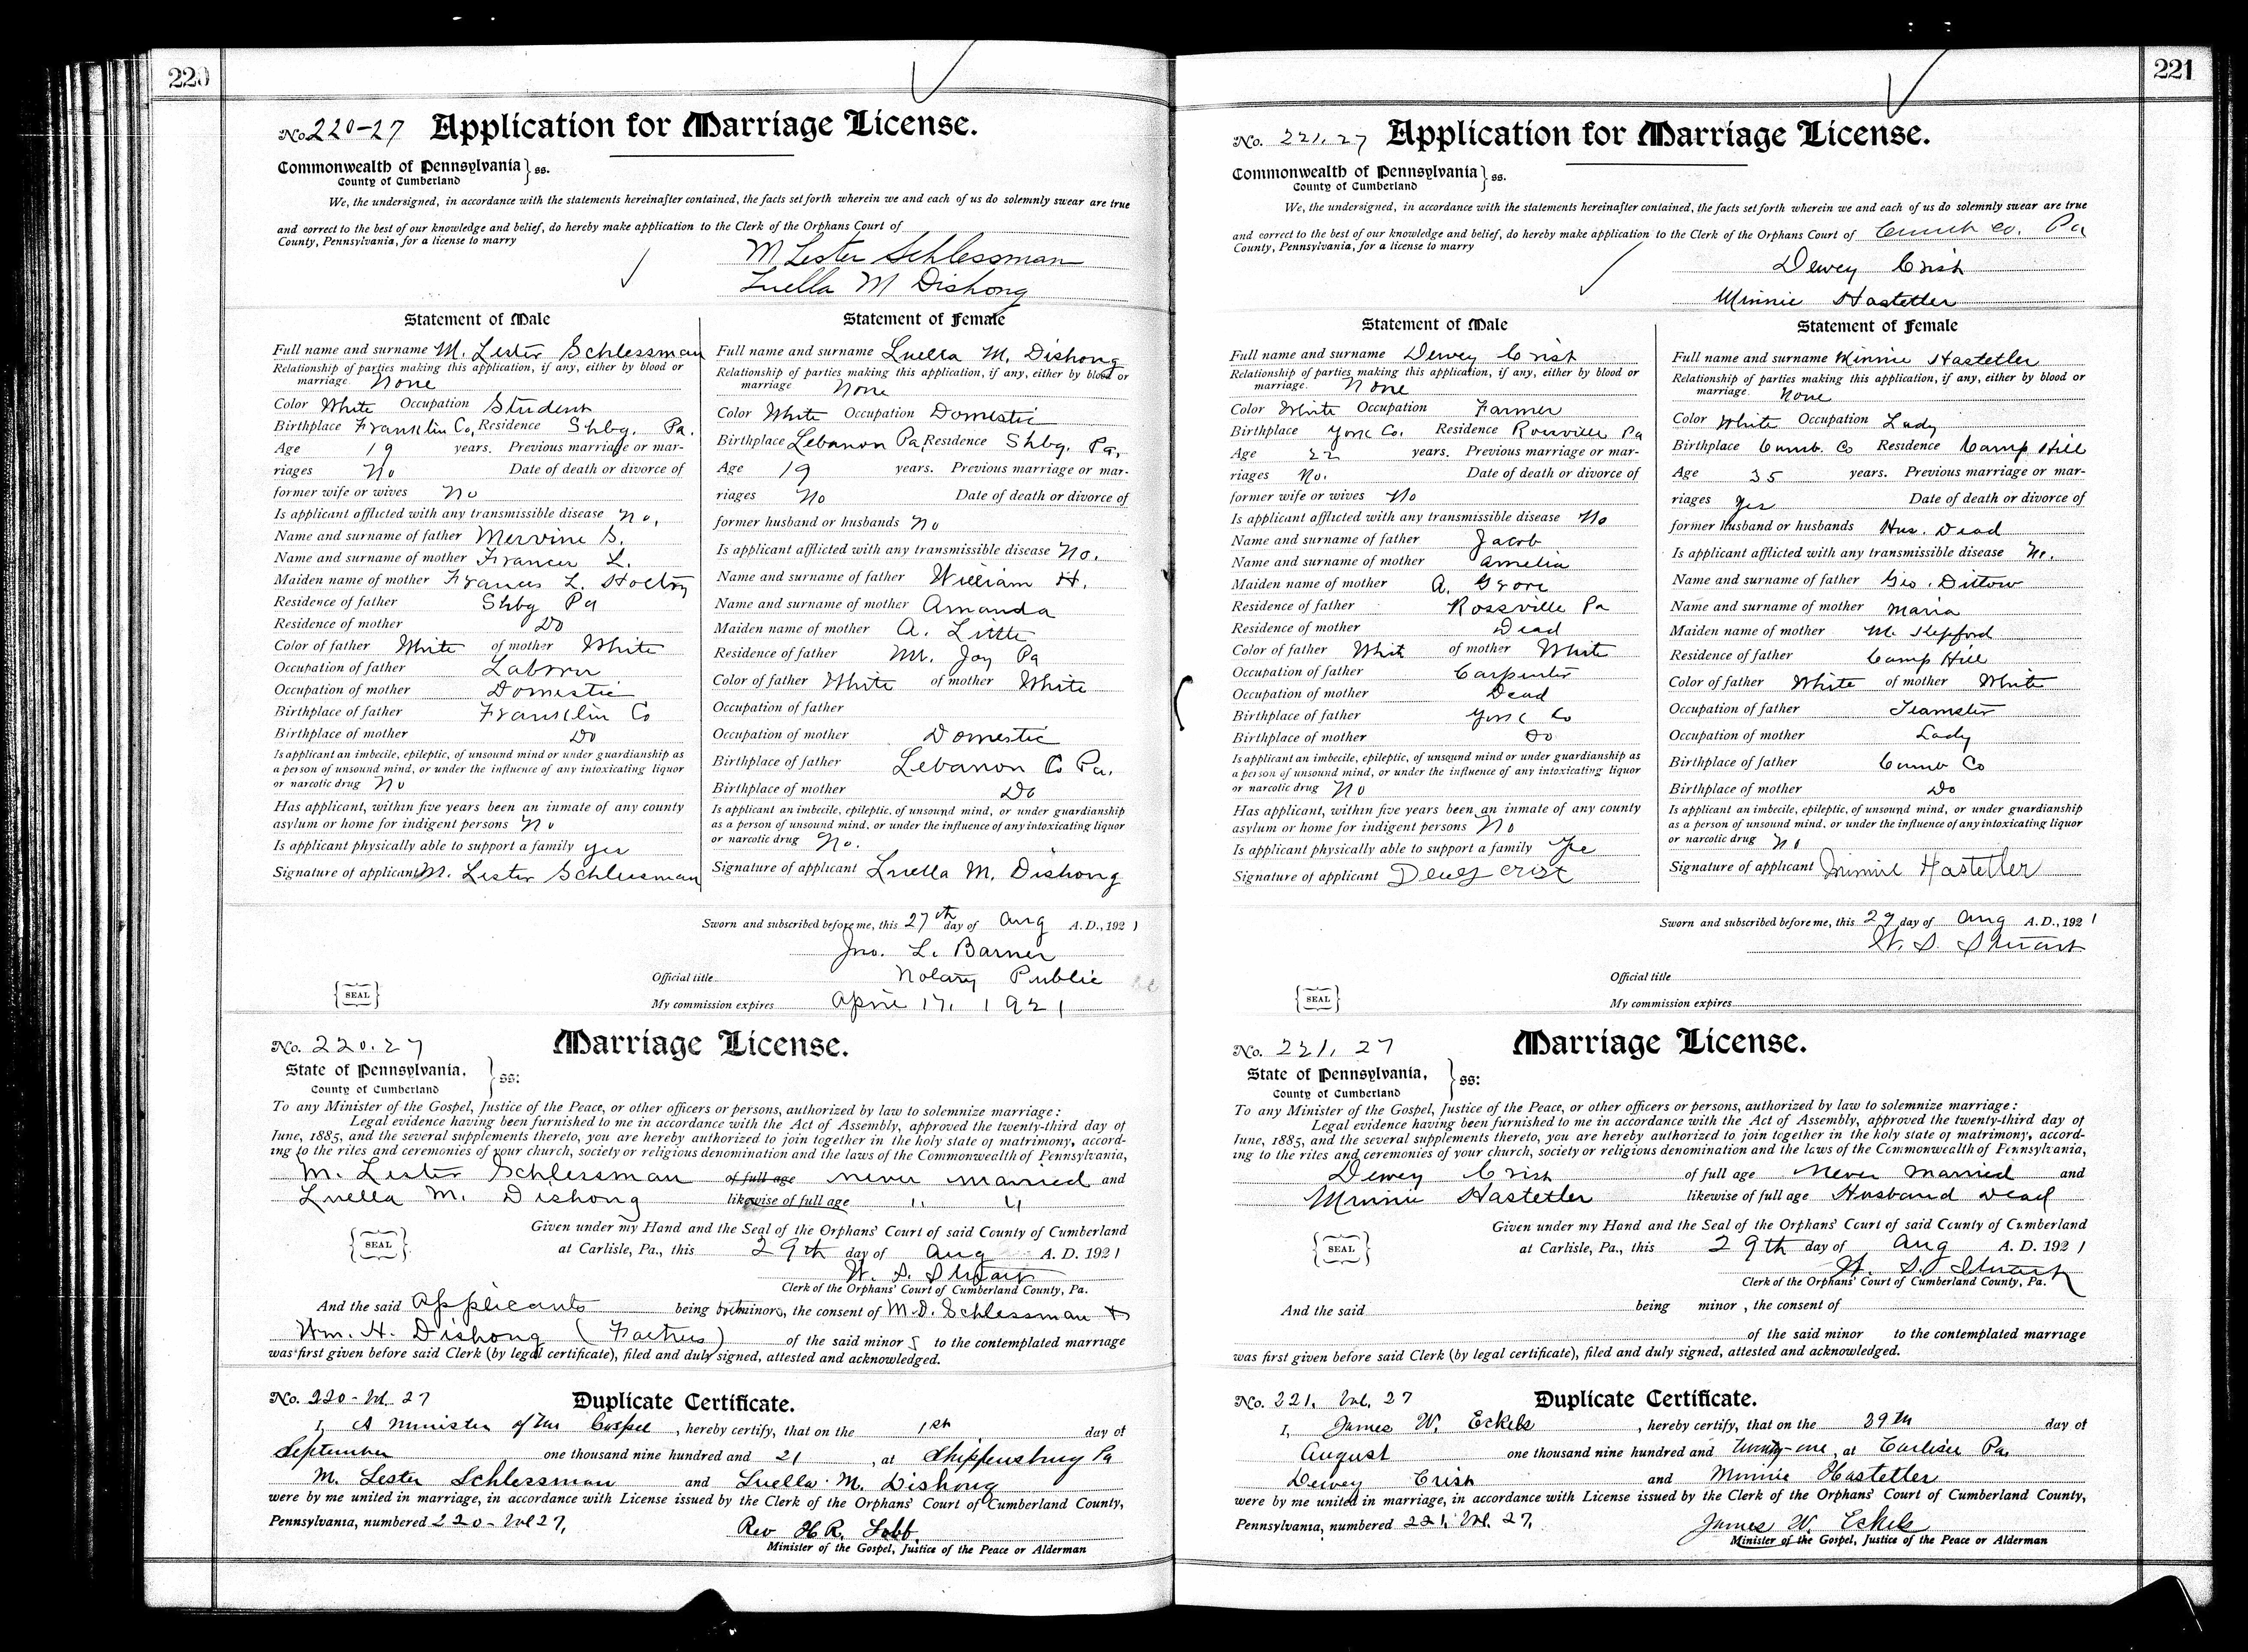 220
No. 220-27 Application for Marriage License.
Commonwealth of Pennsylvania } ss.
County of Cumberland
We, the undersigned, in accordance with the statements hereinafter contained, the facts set forth wherein we and each of us do solemnly swear are true
and correct to the best of our knowledge and belief, do hereby make application to the Clerk of the Orphans Court of
County, Pennsylvania, for a license to marry
M Lester Schlessman
Luella M Dishong
Statement of Male
Full name and surname M. Lester Schlessman
Relationship of parties making this application, if any, either by blood or
marriage. None
Color White Occupation Student
Birthplace Franklin Co, Residence Shbg. Pa.
Age 19 years. Previous marriage or mar-
riages No Date of death or divorce of
former wife or wives No
Is applicant afflicted with any transmissible disease No,
Name and surname of father Mervine S.
Name and surname of mother Frances L.
Maiden name of mother Frances L.
Residence of father Shbg Pa
Residence of mother Do
Color of father White of mother White
Occupation of father Laborer
Occupation of mother Domestic
Birthplace of father Franklin Co
Birthplace of mother Do
Is applicant an imbecile, epileptic, of unsound mind or under guardianship as
a person of unsound mind, or under the influence of any intoxicating liquor
or narcotic drug No
Has applicant, within five years been an inmate of any county
asylum or home for indigent persons No
Is applicant physically able to support a family yes
Signature of applicant M. Lester Schlessman
Statement of Female
Full name and surname Luella M. Dishong
Relationship of parties making this application, if any, either by blood or
marriage None
Color White Occupation Domestic
Birthplace Lebanon Pa, Residence Shbg. Pa,
Age 19 years. Previous marriage or mar-
riages No Date of death or divorce of
former husband or husbands No
Is applicant afflicted with any transmissible disease No.
Name and surname of father William H.
Name and surname of mother Amanda
Maiden name of mother A. Little
Residence of father Mt. Joy Pa
Color of father White of mother White
Occupation of father
Occupation of mother Domestic
Birthplace of father Lebanon Co Pa.
Birthplace of mother Do
Is applicant an imbecile, epileptic, of unsound mind, or under guardianship
as a person of unsound mind, or under the influence of any intoxicating liquor
or narcotic drug No.
Signature of applicant Luella M. Dishong
Sworn and subscribed before me, this 27th day of Aug A. D., 1921
Jno. L. Barner
Official title Notary Public
{SEAL} My commission expires April 17, 1921
No. 220.27 Marriage License.
State of Pennsylvania, } ss:
County of Cumberland
To any Minister of the Gospel, Justice of the Peace, or other officers or persons, authorized by law to solemnize marriage:
Legal evidence having been furnished to me in accordance with the Act of Assembly, approved the twenty-third day of
June, 1885, and the several supplements thereto, you are hereby authorized to join together in the holy state of matrimony, accord-
ing to the rites and ceremonies of your church, society or religious denomination and the laws of the Commonwealth of Pennsylvania,
M. Lester Schlessman of full age never married and
Luella M. Dishong likewise of full age " "
Given under my Hand and the Seal of the Orphans' Court of said County of Cumberland
{SEAL} at Carlisle, Pa., this 29th day of Aug A. D. 1921
W. S. Stuart
Clerk of the Orphans' Court of Cumberland County, Pa.
And the said applicants being both minors, the consent of M.S. Schlessman &
Wm. H. Dishong (Fathers) of the said minor s to the contemplated marriage
was first given before said Clerk (by legal certificate), filed and duly signed, attested and acknowledged.
No. 220-Vol. 27 Duplicate Certificate.
I, A minister of the Gospel, hereby certify, that on the 1st day of
September one thousand nine hundred and 21, at Shippensburg Pa
M. Lester Schlessman and Luella M. Dishong
were by me united in marriage, in accordance with License issued by the Clerk of the Orphans' Court of Cumberland County,
Pennsylvania, numbered 220-Vol 27,
Rev H. R. Lobb.
Minister of the Gospel, Justice of the Peace or Alderman
221
No. 221, 27 Application for Marriage License.
Commonwealth of Pennsylvania } ss.
County of Cumberland
We, the undersigned, in accordance with the statements hereinafter contained, the facts set forth wherein we and each of us do solemnly swear are true
and correct to the best of our knowledge and belief, do hereby make application to the Clerk of the Orphans Court of Cumb Co. Pa
County, Pennsylvania, for a license to marry
Dewey Crist
Minnie Hastetler
Statement of Male
Full name and surname Dewey Crist
Relationship of parties making this application, if any, either by blood or
marriage. None
Color White Occupation Farmer
Birthplace York Co. Residence Rossville Pa
Age 22 years. Previous marriage or mar-
riages No. Date of death or divorce of
former wife or wives No
Is applicant afflicted with any transmissible disease No
Name and surname of father Jacob
Name and surname of mother Amelia
Maiden name of mother A. Grove
Residence of father Rossville Pa
Residence of mother Dead
Color of father Whit of mother White
Occupation of father Carpenter
Occupation of mother Dead
Birthplace of father York Co
Birthplace of mother Do
Is applicant an imbecile, epileptic, of unsound mind or under guardianship as
a person of unsound mind, or under the influence of any intoxicating liquor
or narcotic drug No
Has applicant, within five years been an inmate of any county
asylum or home for indigent persons No
Is applicant physically able to support a family Yes
Signature of applicant Dewey Crist
Statement of Female
Full name and surname Minnie Hastetler
Relationship of parties making this application, if any, either by blood or
marriage None
Color White Occupation Lady
Birthplace Cumb. Co Residence Camp Hill
Age 35 years. Previous marriage or mar-
riages yes Date of death or divorce of
former husband or husbands Hus. Dead
Is applicant afflicted with any transmissible disease No.
Name and surname of father Geo.
Name and surname of mother Maria
Maiden name of mother M.
Residence of father Camp Hill
Color of father White of mother White
Occupation of father Teamster
Occupation of mother Lady
Birthplace of father Cumb Co
Birthplace of mother Do
Is applicant an imbecile, epileptic, of unsound mind, or under guardianship
as a person of unsound mind, or under the influence of any intoxicating liquor
or narcotic drug No
Signature of applicant Minnie Hastetler
Sworn and subscribed before me, this 29 day of Aug A. D., 1921
W. S. Stuart
Official title
{SEAL} My commission expires
No. 221, 27 Marriage License.
State of Pennsylvania, } ss:
County of Cumberland
To any Minister of the Gospel, Justice of the Peace, or other officers or persons, authorized by law to solemnize marriage:
Legal evidence having been furnished to me in accordance with the Act of Assembly, approved the twenty-third day of
June, 1885, and the several supplements thereto, you are hereby authorized to join together in the holy state of matrimony, accord-
ing to the rites and ceremonies of your church, society or religious denomination and the laws of the Commonwealth of Pennsylvania,
Dewey Crist of full age Never Married and
Minnie Hastetler likewise of full age Husband Dead
Given under my Hand and the Seal of the Orphans' Court of said County of Cumberland
{SEAL} at Carlisle, Pa., this 29th day of Aug A. D. 1921
W. S. Stuart
Clerk of the Orphans' Court of Cumberland County, Pa.
And the said being minor, the consent of
of the said minor to the contemplated marriage
was first given before said Clerk (by legal certificate), filed and duly signed, attested and acknowledged.
No. 221, Vol. 27 Duplicate Certificate.
I, James W. Eckels, hereby certify, that on the 29th day of
August one thousand nine hundred and twenty-one, at Carlisle Pa.
Dewey Crist and Minnie Hastetler
were by me united in marriage, in accordance with License issued by the Clerk of the Orphans' Court of Cumberland County,
Pennsylvania, numbered 221, Vol. 27,
James W. Eckels
Minister of the Gospel, Justice of the Peace or Alderman